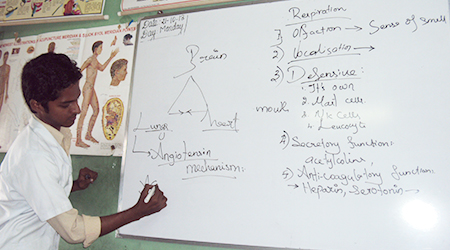 NATIONAL ACUPUNCTURE MERIDIAN & EXTRA MERIDIAN POWER
Date:
Day: Monday
Brain
Lungs
heart
Angiotensin
mechanism:
Respiration
1) Olfaction → Sense of Smell
2) Localisation →
3) Defensive:
1. It's own
2. Mast cells
mouth
Cells
4. Leucocytes
Secretory function:
5) Anticoagulatory function:
→ Heparin, Serotonin →